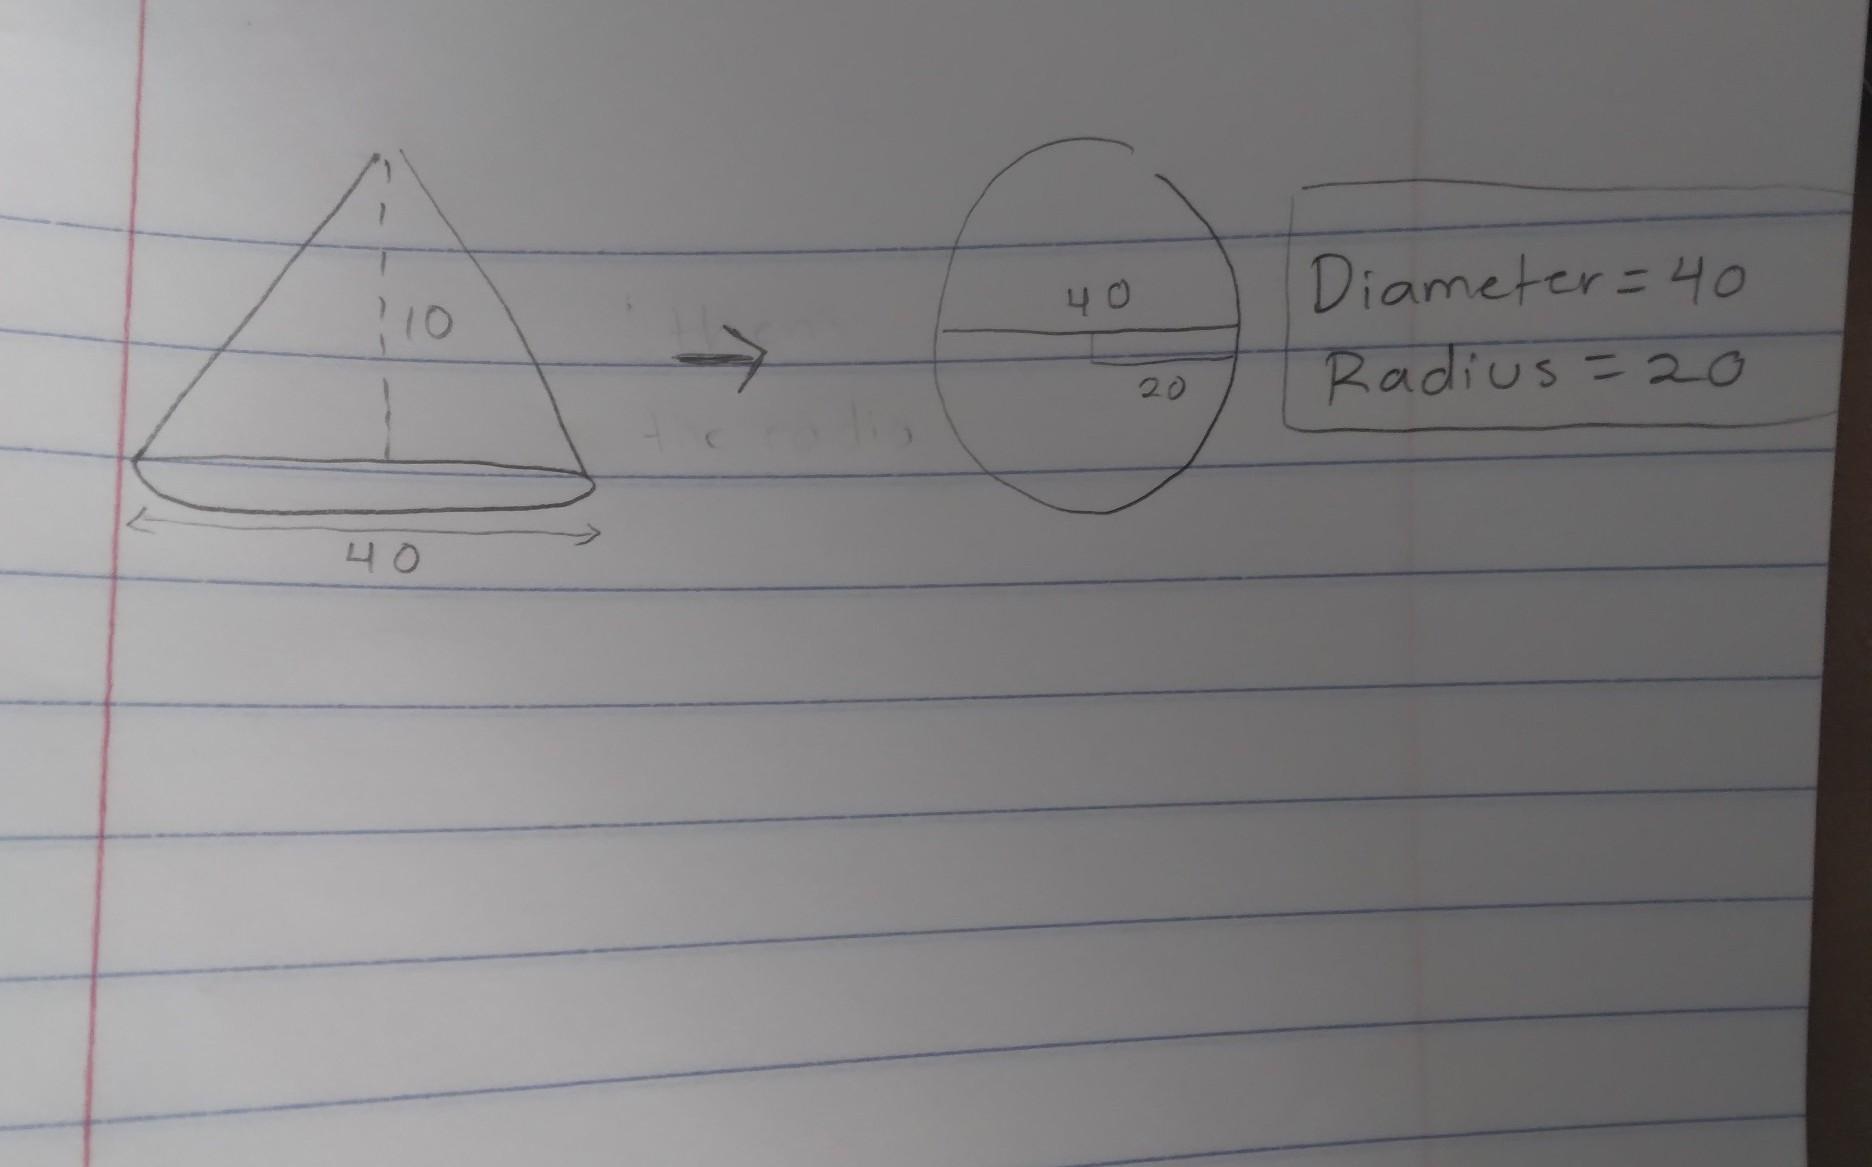 10
40
40
20
Diameter = 40
Radius = 20